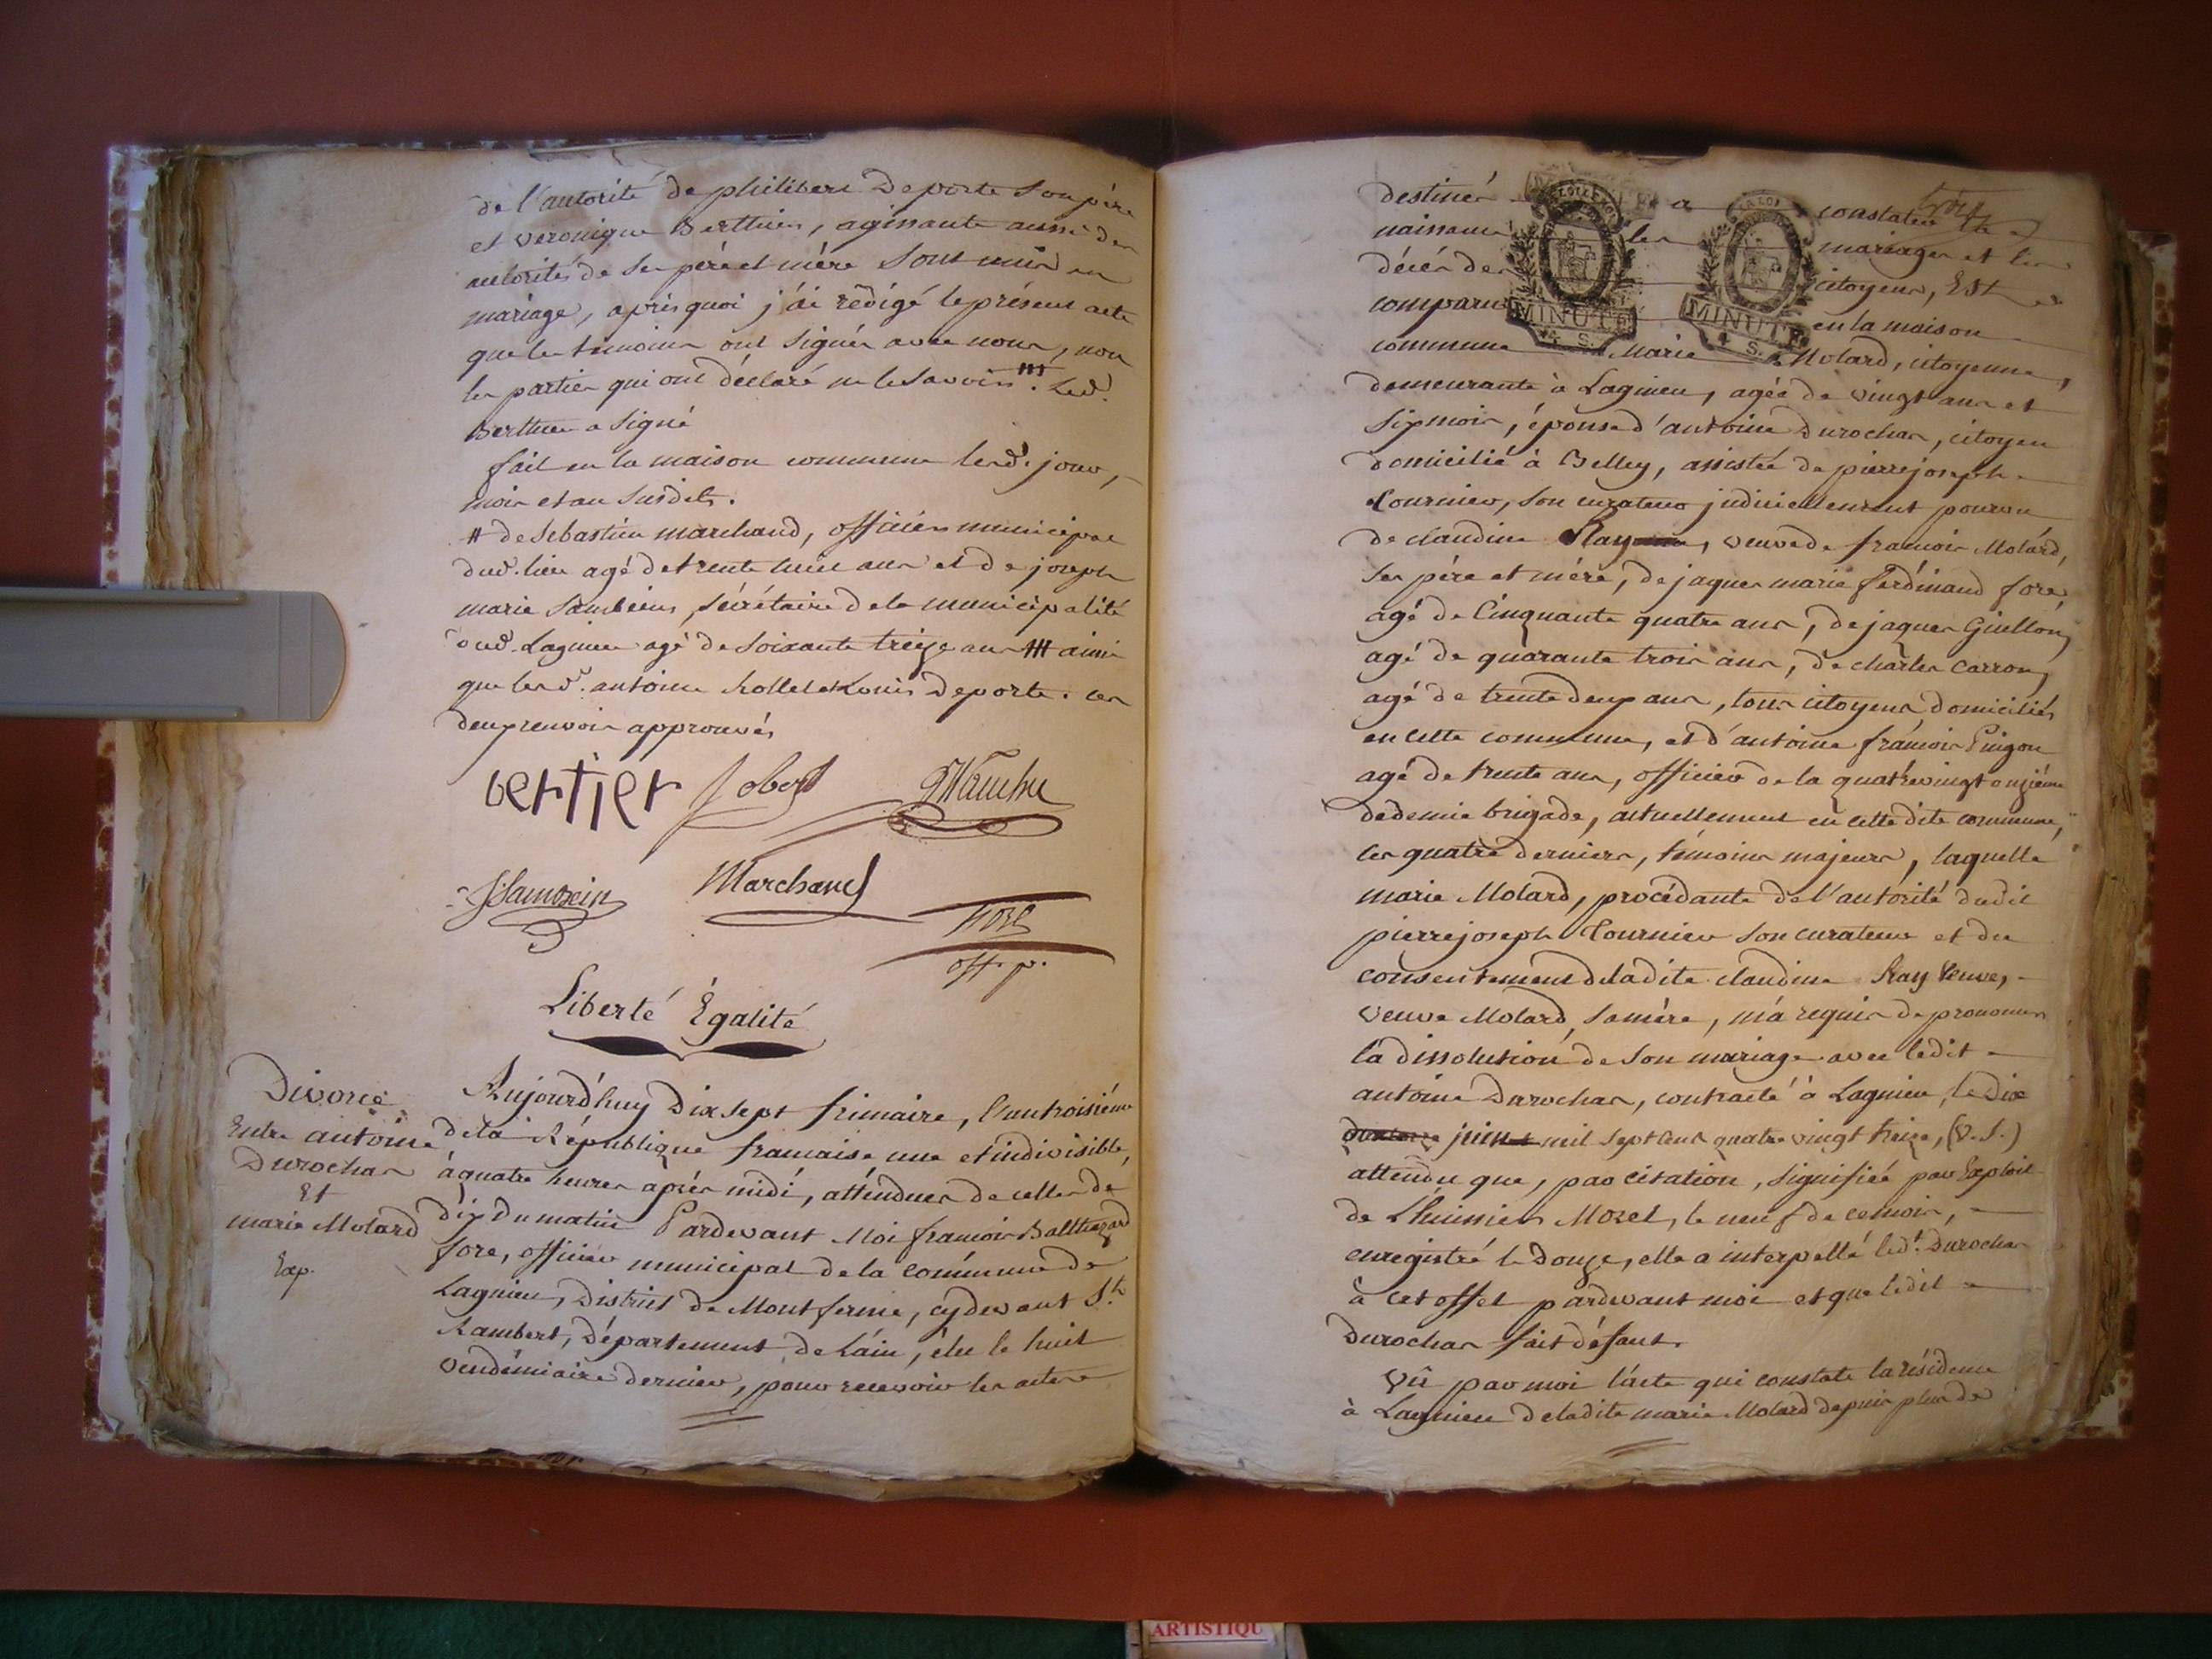 de l'autorité de philibert Deporte Son père
et veronique Berthier, agissante aussi des
autorités de ses père et mère sont unis en
mariage, après quoi j'ai rédigé le présent acte
que les témoins ont signés avec nous, non
les parties qui ont déclaré ne le savoir. led.
Berthier a signé
fait en la maison commune lesd. jour,
mois et an susdits.
# de Sebastien marchand, officier municipal
dud. lieu agé de trente huit ans et de joseph
marie , sécrétaire de la municipalité
dud. Lagnieu agé de soixante treize ans ainsi
que lesd. antoine et Louis Deporte. ces
deux renvois approuvés
bertier Jobert
Marchand
fore
off. p.
Liberté Égalité
Divorce
Entre antoine
Durochar
Et
marie Molard
Exp.
Aujourd'huy Dix sept frimaire, l'an troisiéme
de la République francaise une et indivisible,
à quatre heures après midi, attendues de celles de
dix du matin Pardevant Moi francois Balthazard
fore, officier municipal de la commune de
Lagnieu, District de Montferme, cydevant St.
Rambert, département de L'ain, élu le huit
vendémiaire dernier, pour recevoir les actes
destinés a constater les
naissances les mariages et les
décés des citoyens, Est
comparu en la maison
commune Marie Molard, citoyenne,
demeurante à Lagnieu, agée de vingt ans et
six mois, épouse d'antoine Durochar, citoyen
domicilié à Belley, assistée de pierre joseph
Tournier, son curateur judiciellement pourvu
de claudine Ray, veuve de francois Molard,
ses père et mère, de jaques marie ferdinand fore,
agé de Cinquante quatre ans, de jaques Guillon,
agé de quarante trois ans, de charles Carron,
agé de trente deux ans, tous citoyens domiciliés
en cette commune, et d'antoine francois
agé de trente ans, officier de la quatrevingt onziéme
dedemie brigade, actuellement en cette dite commune,
les quatre derniers, témoins majeurs, laquelle
marie Molard, procédante de l'autorité dudit
pierre joseph Tournier son curateur et du
consentement de ladite claudine Ray Veuve,
veuve Molard, sa mère, m'a requis de prononcer
la dissolution de son mariage avec ledit
antoine Durochar, contracté à Lagnieu, le Dix
juin mil sept cent quatre vingt treize, (v. s.)
attendu que, par citation, signifiée par Exploit
de L'huissier Morel, le neuf de ce mois,
enregistré le Douze, elle a interpellé led.t Durochar
à cet effet pardevant moi et que ledit
Durochar fait défaut.
Vû par moi l'acte qui constate la résidence
à Lagnieu de ladite marie Molard depuis plus de
LA LOI
MINUTE
4. S.
LA LOI
MINUTE
4. S.
ARTISTIQU